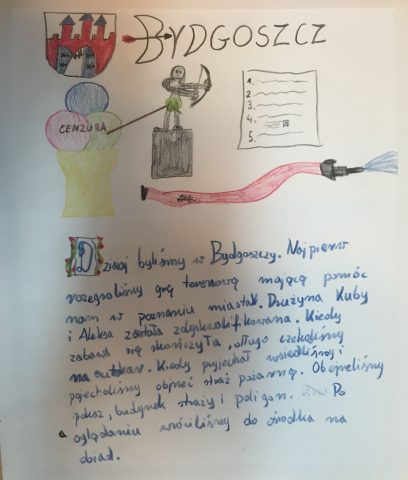 BYDGOSZCZ
CENZURA
1.
2.
3.
4.
5.
Dzisiaj byliśmy w Bydgoszczy. Najpierw
rozegraliśmy grę terenową mającą pomóc
nam w poznaniu miasta. Drużyna Kuby
i Aleksa została zdyskwalifikowana. Kiedy
zabawa się skończyła, długo czekaliśmy
na autokar. Kiedy przyjechał wsiedliśmy i
pojechaliśmy obejrzeć straż pożarną. Obejrzeliśmy
pokaz, budynek straży i poligon. Po
oglądaniu wróciliśmy do ośrodka na
obiad.